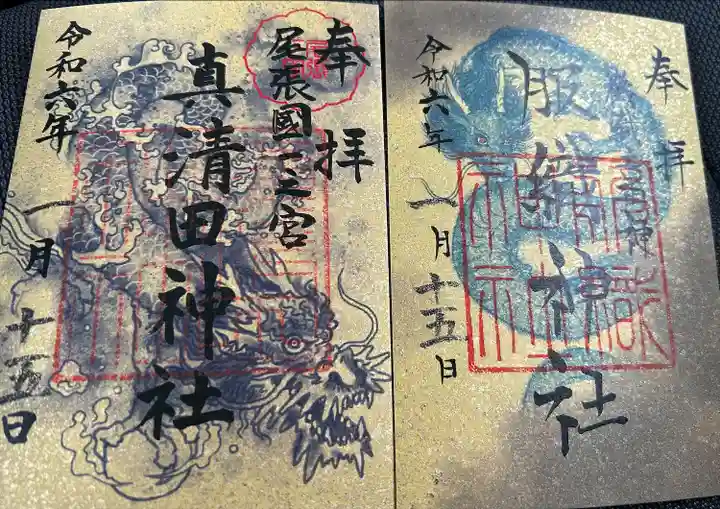 奉拝
服織神社
令和六年
一月十五日
奉拝
尾張國一之宮
真清田神社
令和六年
一月十五日